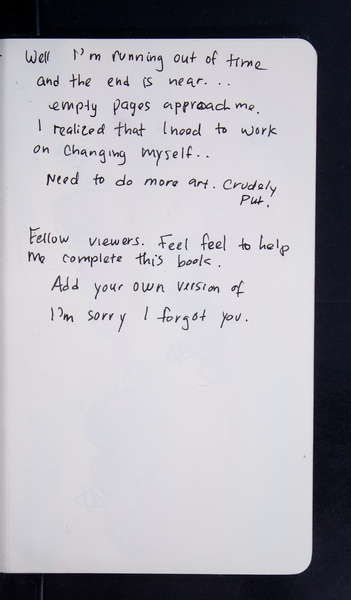 Well I'm running out of time
and the end is near...
empty pages approach me.
I realized that I need to work
on changing myself..
Need to do more art. Crudely
Put.
Fellow viewers. Feel feel to help
me complete this book.
Add your own version of
I'm sorry I forgot you.